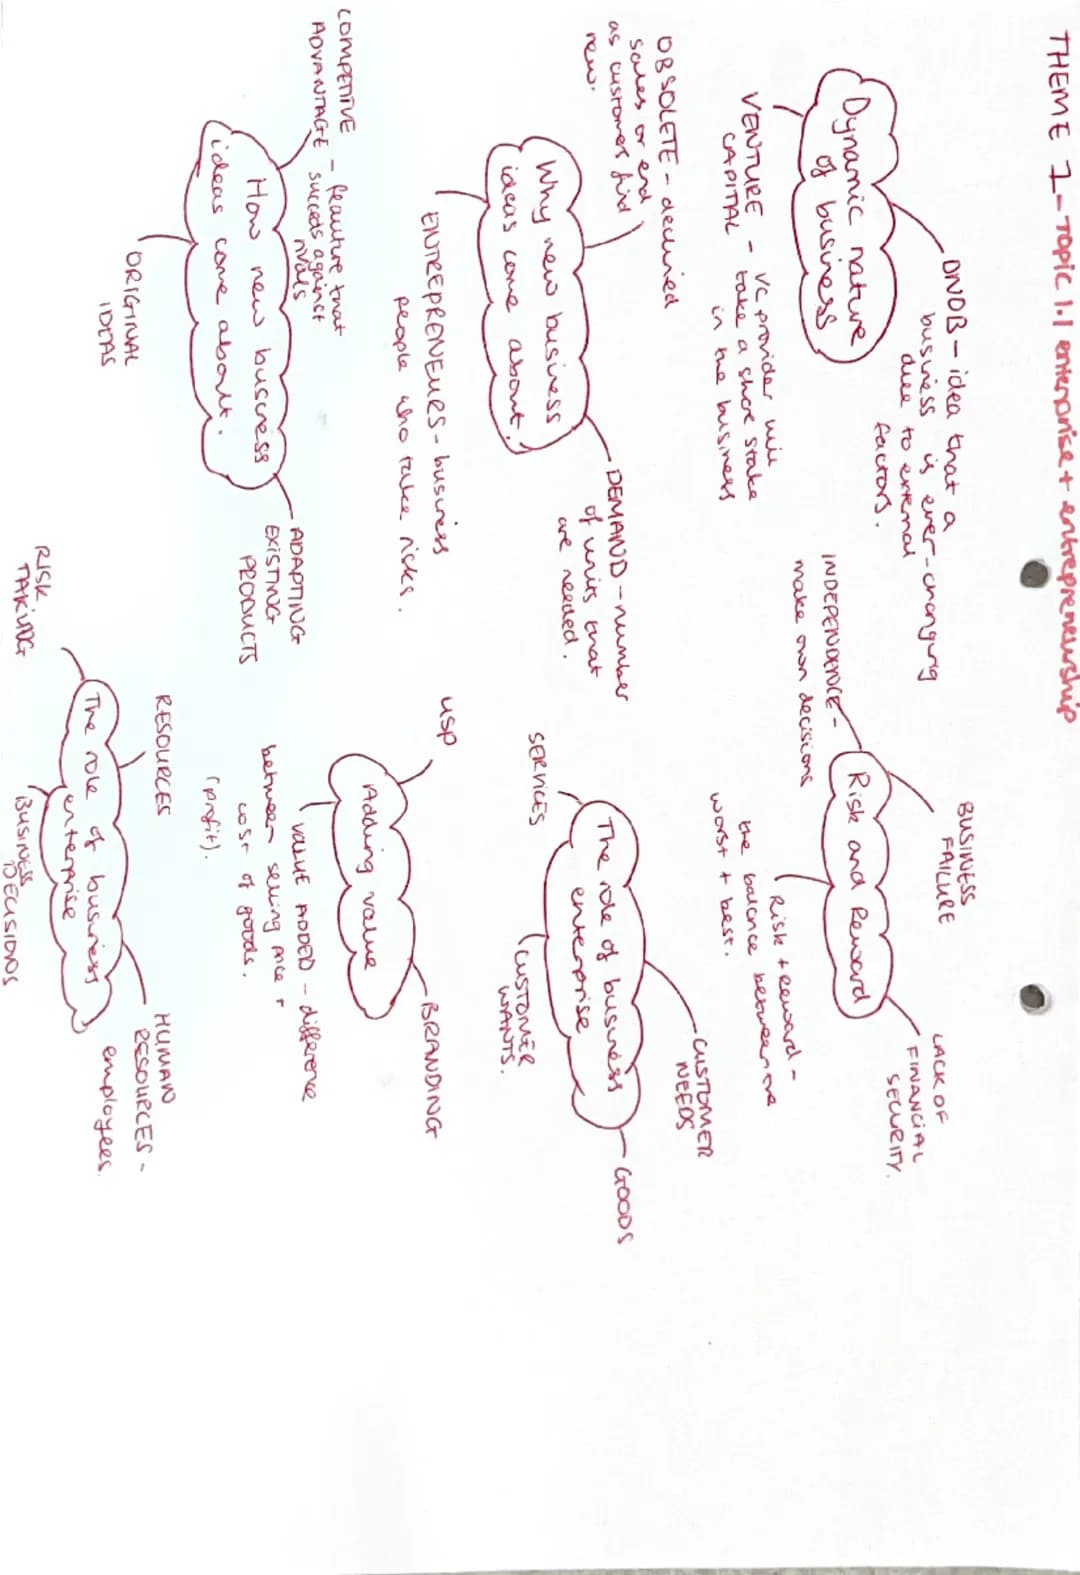 THEME 1 - TOPIC 1.1 enterprise + entrepreneurship
Dynamic nature
of business
DNOB - idea that a
business is ever-changing
due to external
factors.
VENTURE - VC provider will
CAPITAL take a share stake
in the business
OBSOLETE - declined
sales or end
as customers find
new.
Why new business
ideas come about.
DEMAND - number
of units that
are needed.
ENTREPRENEURS - business
people who take risks.
COMPETITIVE
ADVANTAGE - feauture that
succeds against
rivals
How new business
ideas come about.
ADAPTING
EXISTING
PRODUCTS
ORIGINAL
IDEAS
BUSINESS
FAILURE
INDEPENDENCE -
make own decisions
Risk and Reward
LACK OF
FINANCIAL
SECURITY.
Risk + reward -
the balance between the
worst + best.
CUSTOMER
NEEDS
The role of business
enterprise
GOODS
SERVICES
CUSTOMER
WANTS.
USP
Adding value
BRANDING
VALUE ADDED - difference
between selling price +
cost of goods.
(profit).
RESOURCES
HUMAN
RESOURCES -
employees.
The role of business
enterprise
RISK
TAKING
BUSINESS
DECISIONS